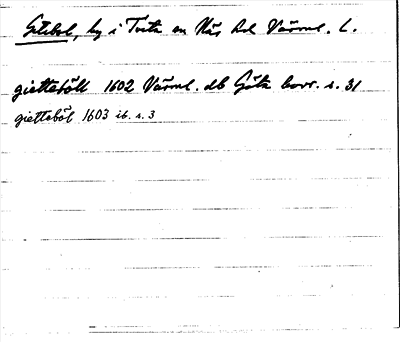 Gtebol, by i Tveta sn Näs hd Värml. L.
gietteböll 1602 Värml. db Göta hovr. s. 31
gietteböl 1603 ib. s. 3